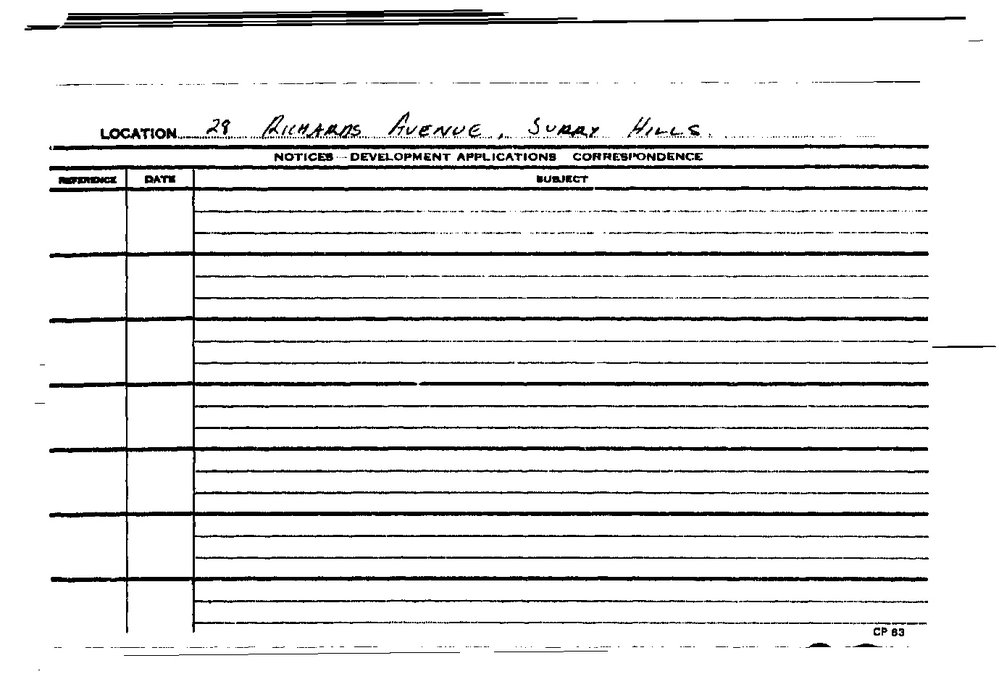 LOCATION 29 RICHARDS AVENUE, SURRY HILLS.
NOTICES - DEVELOPMENT APPLICATIONS CORRESPONDENCE
REFERENCE DATE SUBJECT
CP 83